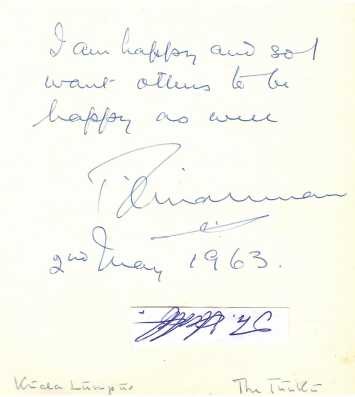 I am happy and so I
want others to be
happy as well
2nd May 1963.
Kuala Lumpur
The Tunku